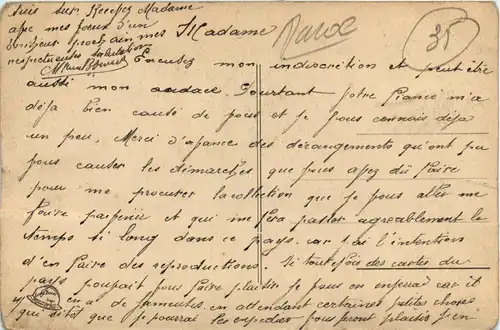 suis sur. Recevez Madame
avec mes voeux d'un
prochain mes
respectueuses salutations
Maroc
35
Madame
Excusez mon indiscrétion et peut être
aussi mon audace Pourtant Votre fiancé m'a
déja bien causé de vous et je vous connais déja
un peu, Merci d'avance des dérangements qu'ont pu
vous causer les démarches que vous avez dû faire
pour me procurer la collection que vous allez me
faire parvenir et qui me fera passer agreablement le
temps si long dans ce pays. car j'ai l'intention
d'en faire des reproductions. Si toutefois des cartes du
pays pouvait vous faire plaisir je vous en enverrai car il
y en a de fameuses. en attendant certaines petites choses
qui sitot que je pourrai les expedier vous feront plaisir j'en